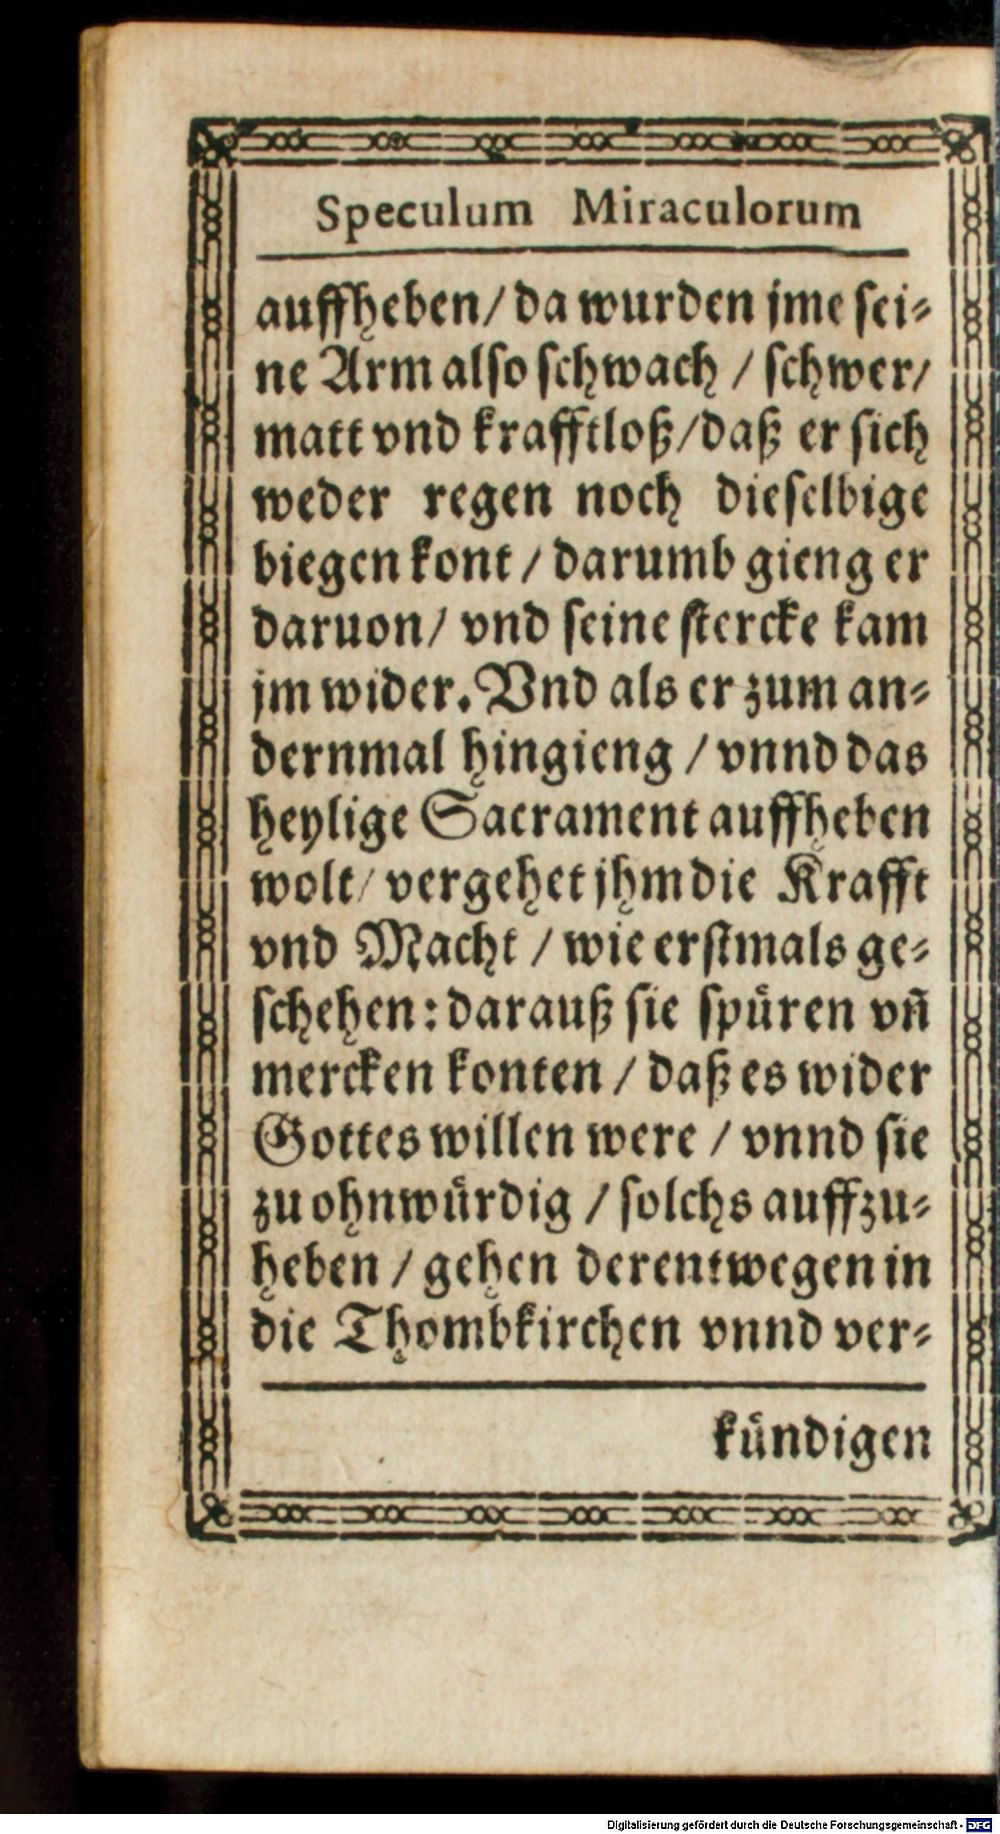 Speculum Miraculorum
auffheben/ da wurden jme sei⸗
ne Arm also schwach / schwer/
matt vnd krafftloß/daß er sich
weder regen noch dieselbige
biegen kont / darumb gieng er
daruon/ vnd seine stercke kam
jm wider. Vnd als er zum an⸗
dernmal hingieng / vnnd das
heylige Sacrament auffheben
wolt/ vergehet jhm die Krafft
vnd Macht / wie erstmals ge⸗
schehen: darauß sie spuͤren vñ
mercken konten / daß es wider
Gottes willen were / vnnd sie
zu ohnwuͤrdig / solchs auffzu⸗
heben / gehen derentwegen in
die Thombkirchen vnnd ver⸗
kuͤndigen
Digitalisierung gefördert durch die Deutsche Forschungsgemeinschaft - DFG